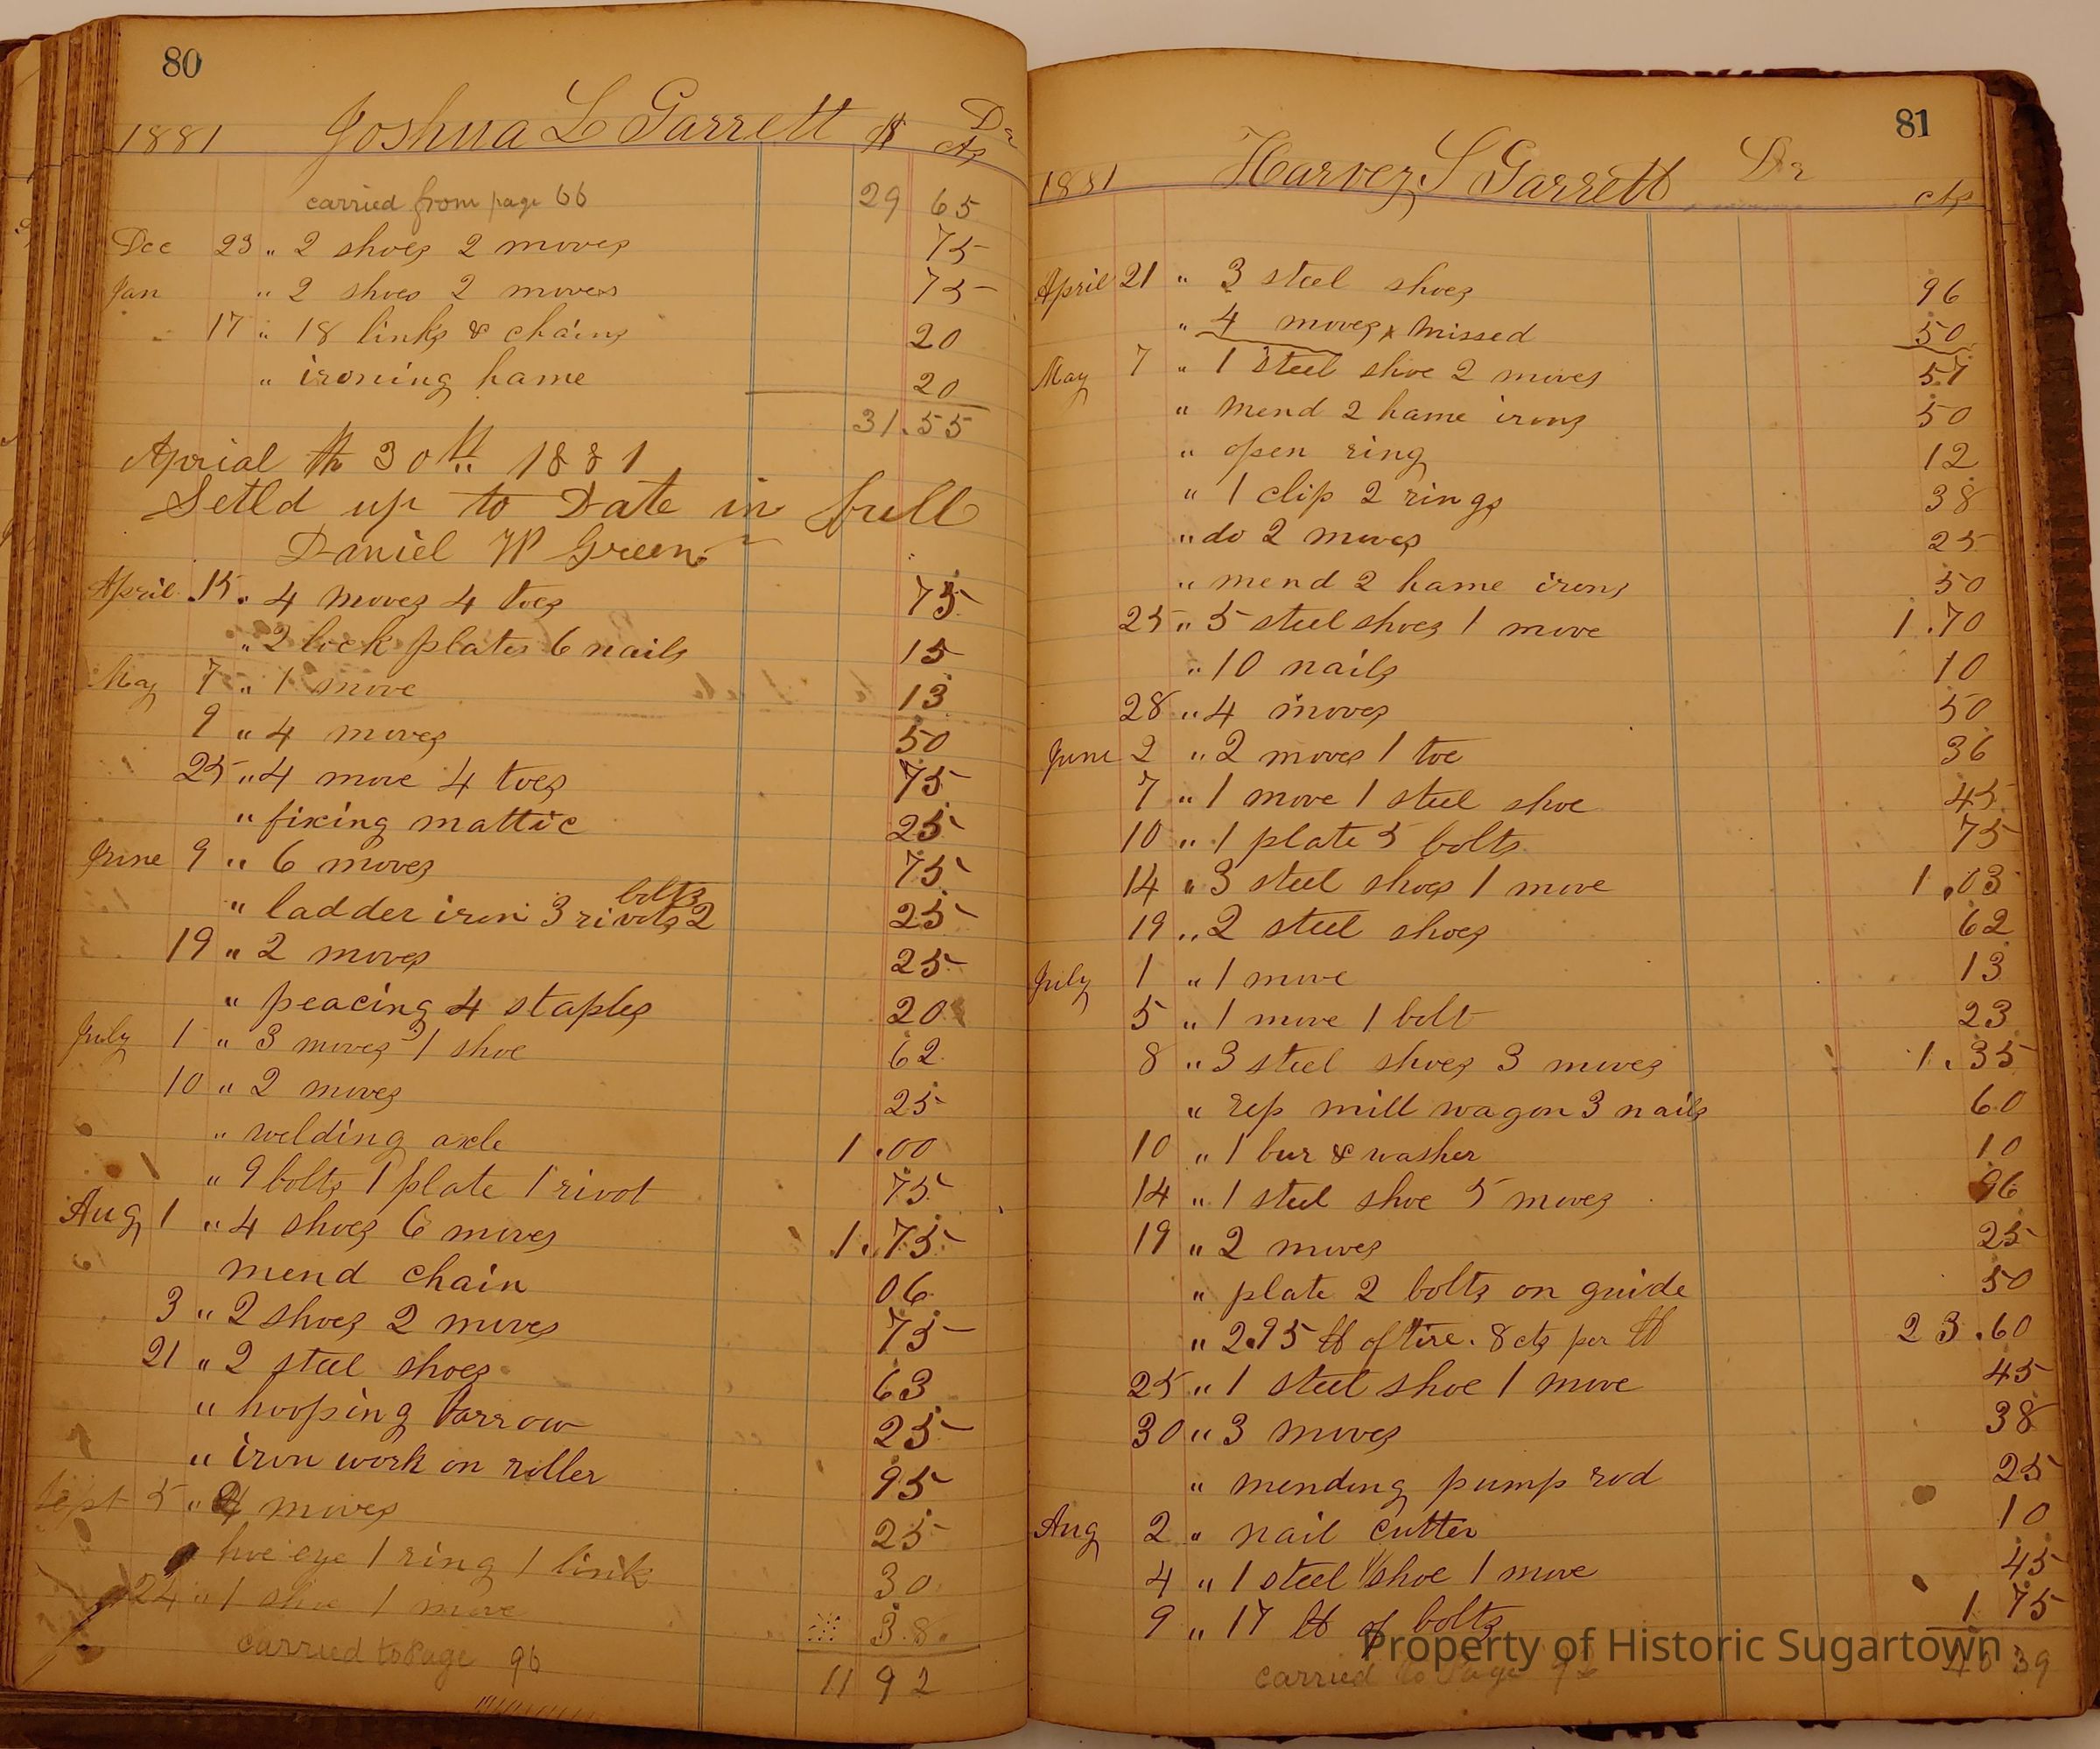 80
1881 Joshua L Garrett $ Dr
cts
carried from page 66 29 65
Dec 23 " 2 shoes 2 moves 75
Jan " 2 shoes 2 moves 75
17 " 18 links & chains 20
" ironing hame 20
31.55
Aprial th 30th 1881
Setld up to Date in full
Daniel W Green
April 15 . 4 moves 4 toes 75
" 2 lock plates 6 nails 15
May 7 " 1 move 13
9 " 4 moves 50
25 " 4 move 4 toes 75
" fixing mattic 25
June 9 " 6 moves 75
bolts
" ladder iron 3 rivots 2 25
19 " 2 moves 25
" peacing 4 staples 20
July 1 " 3 moves 1 shoe 62
10 " 2 moves 25
" welding axle 1.00
" 9 bolts 1 plate 1 rivot 75
Aug 1 " 4 shoes 6 moves 1.75
mend chain 06
3 " 2 shoes 2 moves 75
21 " 2 steel shoes 63
" hooping barrow 25
" iron work on roller 95
Sept 5 " moves 25
hoe eye 1 ring 1 link 30
24 " 1 shoe 1 move 38
carried to Page 96
11 92
81
1881 Harvey S Garrett Dr
cts
April 21 " 3 steel shoes 96
" 4 moves x missed 50
May 7 " 1 steel shoe 2 moves 57
" mend 2 hame irons 50
" open ring 12
" 1 clip 2 rings 38
" do 2 moves 25
" mend 2 hame irons 50
25 " 5 steel shoes 1 move 1.70
" 10 nails 10
28 " 4 moves 50
June 2 " 2 moves 1 toe 36
7 " 1 move 1 steel shoe 45
10 " 1 plate 5 bolts 75
14 " 3 steel shoes 1 move 1.03
19 " 2 steel shoes 62
July 1 " 1 move 13
5 " 1 move 1 bolt 23
8 " 3 steel shoes 3 moves 1.35
" rep mill wagon 3 nails 60
10 " 1 bur & washer 10
14 " 1 steel shoe 5 moves 96
19 " 2 moves 25
" plate 2 bolts on guide 50
" 2.95 lb of tire. 8 cts per lb 23.60
25 " 1 steel shoe 1 move 45
30 " 3 moves 38
" mending pump rod 25
Aug 2 " nail cutter 10
4 " 1 steel shoe 1 move 45
9 " 17 lb of bolts 1 75
Property of Historic Sugartown
carried to Page 39